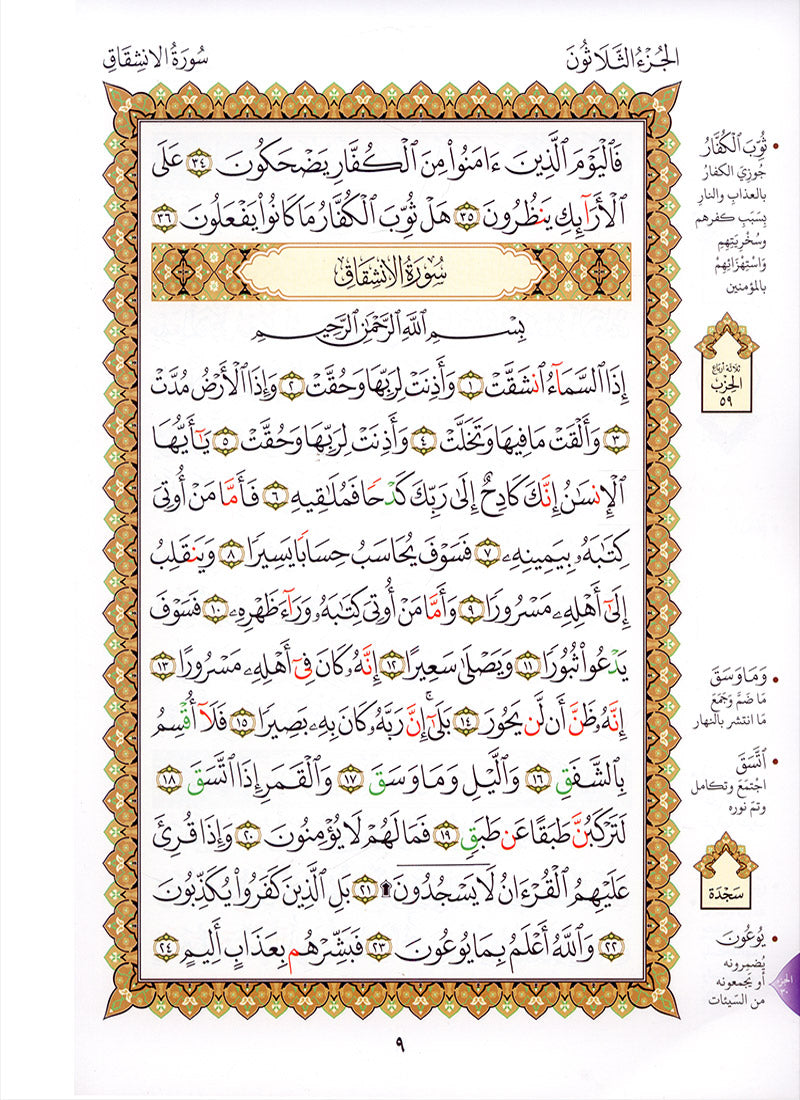 الجُزْءُ الثَّلَاثُونَ
سُورَةُ الانشِقَاقِ
فَٱلْيَوْمَ ٱلَّذِينَ ءَامَنُوا۟ مِنَ ٱلْكُفَّارِ يَضْحَكُونَ ٣٤ عَلَى
ٱلْأَرَآئِكِ يَنظُرُونَ ٣٥ هَلْ ثُوِّبَ ٱلْكُفَّارُ مَا كَانُوا۟ يَفْعَلُونَ ٣٦
سُورَةُ الانشِقَاقِ
بِسْمِ ٱللَّهِ ٱلرَّحْمَٰنِ ٱلرَّحِيمِ
إِذَا ٱلسَّمَآءُ ٱنشَقَّتْ ١ وَأَذِنَتْ لِرَبِّهَا وَحُقَّتْ ٢ وَإِذَا ٱلْأَرْضُ مُدَّتْ
٣ وَأَلْقَتْ مَا فِيهَا وَتَخَلَّتْ ٤ وَأَذِنَتْ لِرَبِّهَا وَحُقَّتْ ٥ يَٰٓأَيُّهَا
ٱلْإِنسَٰنُ إِنَّكَ كَادِحٌ إِلَىٰ رَبِّكَ كَدْحًا فَمُلَٰقِيهِ ٦ فَأَمَّا مَنْ أُوتِىَ
كِتَٰبَهُۥ بِيَمِينِهِۦ ٧ فَسَوْفَ يُحَاسَبُ حِسَابًا يَسِيرًا ٨ وَيَنقَلِبُ
إِلَىٰٓ أَهْلِهِۦ مَسْرُورًا ٩ وَأَمَّا مَنْ أُوتِىَ كِتَٰبَهُۥ وَرَآءَ ظَهْرِهِۦ ١٠ فَسَوْفَ
يَدْعُوا۟ ثُبُورًا ١١ وَيَصْلَىٰ سَعِيرًا ١٢ إِنَّهُۥ كَانَ فِىٓ أَهْلِهِۦ مَسْرُورًا ١٣
إِنَّهُۥ ظَنَّ أَن لَّن يَحُورَ ١٤ بَلَىٰٓ ۚ إِنَّ رَبَّهُۥ كَانَ بِهِۦ بَصِيرًا ١٥ فَلَآ أُقْسِمُ
بِٱلشَّفَقِ ١٦ وَٱلَّيْلِ وَمَا وَسَقَ ١٧ وَٱلْقَمَرِ إِذَا ٱتَّسَقَ ١٨
لَتَرْكَبُنَّ طَبَقًا عَن طَبَقٍ ١٩ فَمَا لَهُمْ لَا يُؤْمِنُونَ ٢٠ وَإِذَا قُرِئَ
عَلَيْهِمُ ٱلْقُرْءَانُ لَا يَسْجُدُونَ ۩ ٢١ بَلِ ٱلَّذِينَ كَفَرُوا۟ يُكَذِّبُونَ
٢٢ وَٱللَّهُ أَعْلَمُ بِمَا يُوعُونَ ٢٣ فَبَشِّرْهُم بِعَذَابٍ أَلِيمٍ ٢٤
• ثُوِّبَ ٱلْكُفَّارُ
جُوزِيَ الكفارُ
بالعذابِ والنارِ
بِسَبَبِ كفرهم
وسُخْرِيَتِهِم
وَاسْتِهْزَائِهِمْ
بالمؤمنين
ثلاثة أرباع
الحِزْب
٥٩
• وَمَا وَسَقَ
مَا ضَمَّ وَجَمَعَ
مَا انتشر بالنهار
• ٱتَّسَقَ
اجْتَمَعَ وتكامل
وتمَ نوره
سَجْدَة
• يُوعُونَ
يُضمِرونه
أو يَجمعونه
من السَيئات
الجزء
٣٠
٩